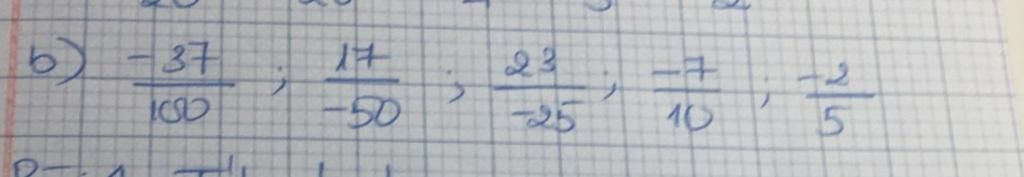 b) -37/100 ; 17/-50 ; 23/-25 ; -7/10 ; -2/5